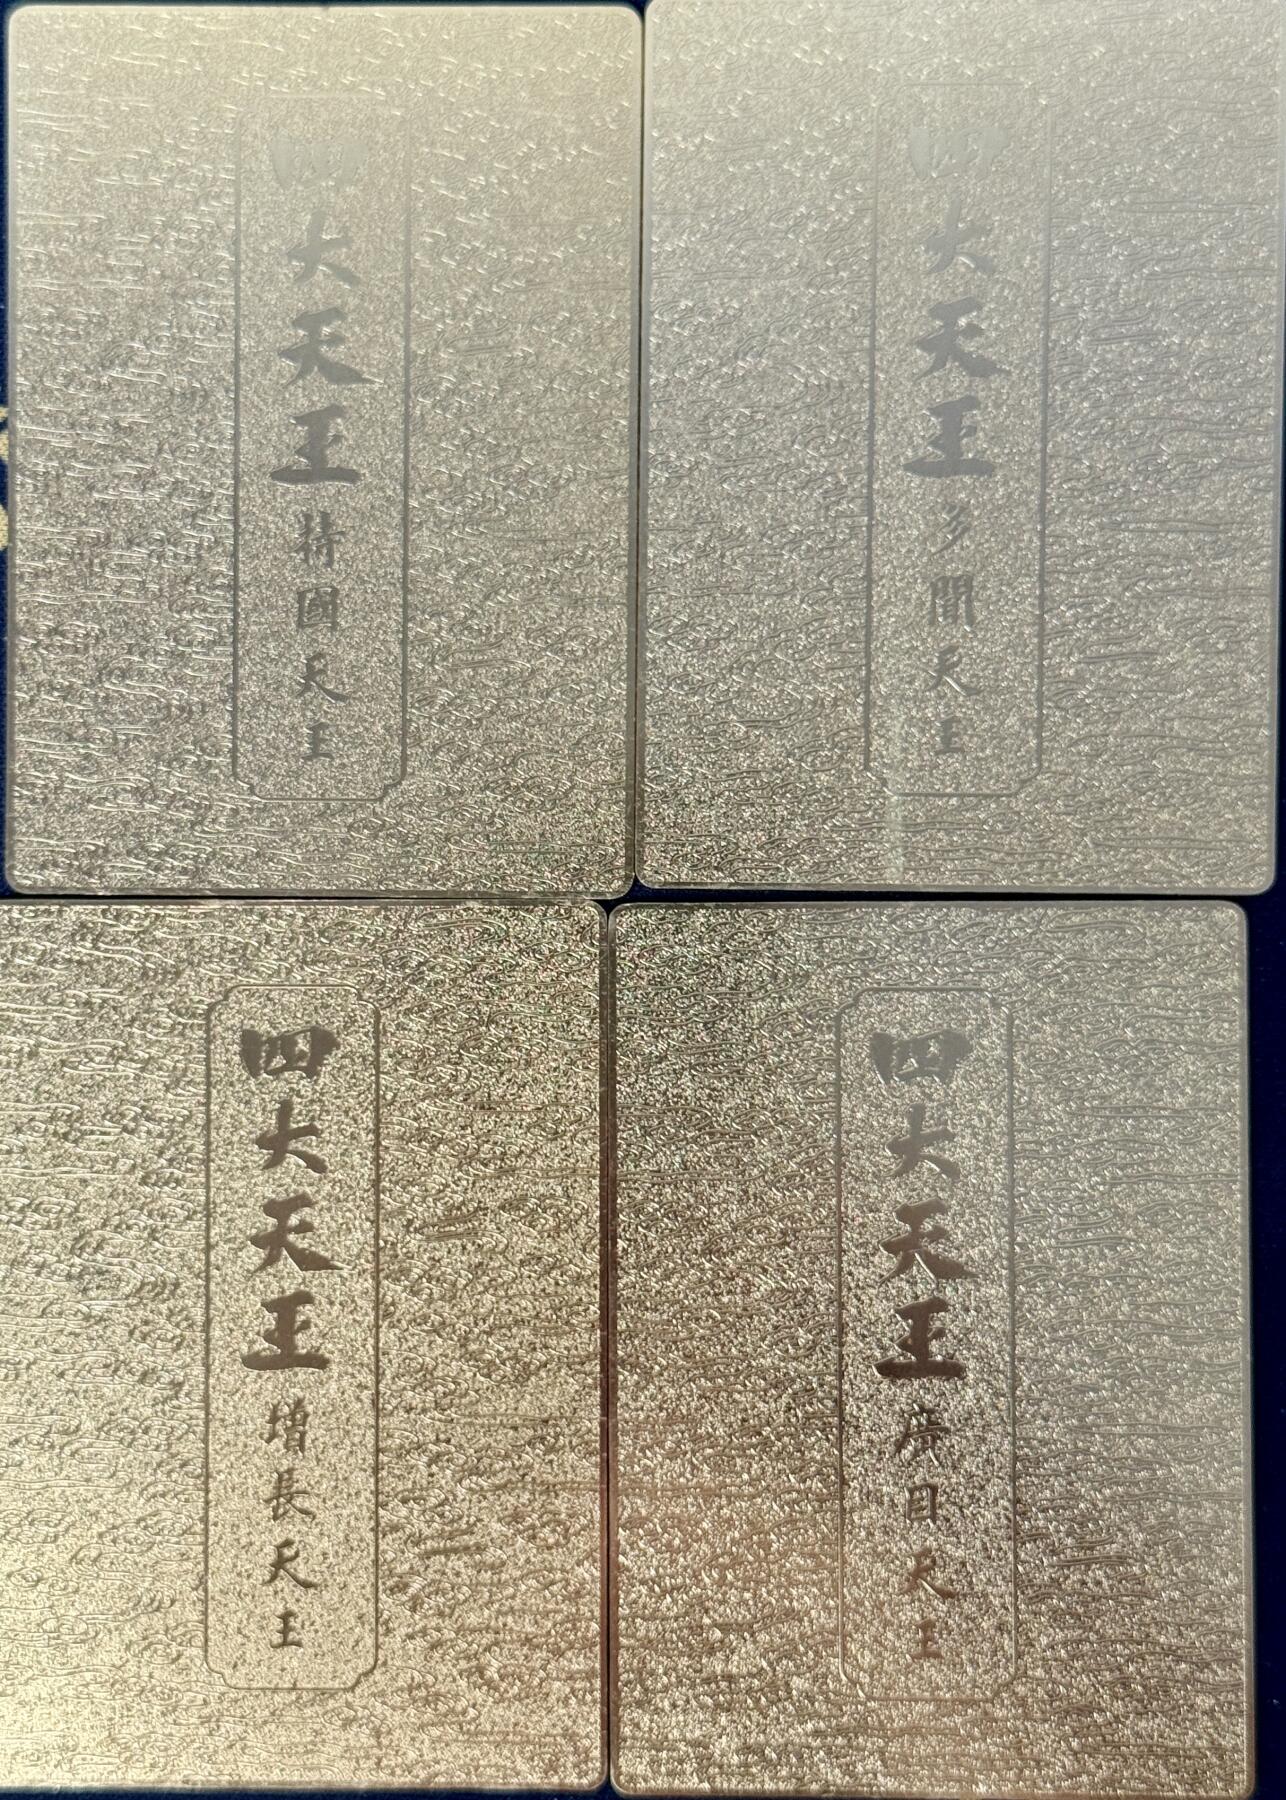 四大天王持國天王
四大天王多聞天王
四大天王增長天王
四大天王廣目天王